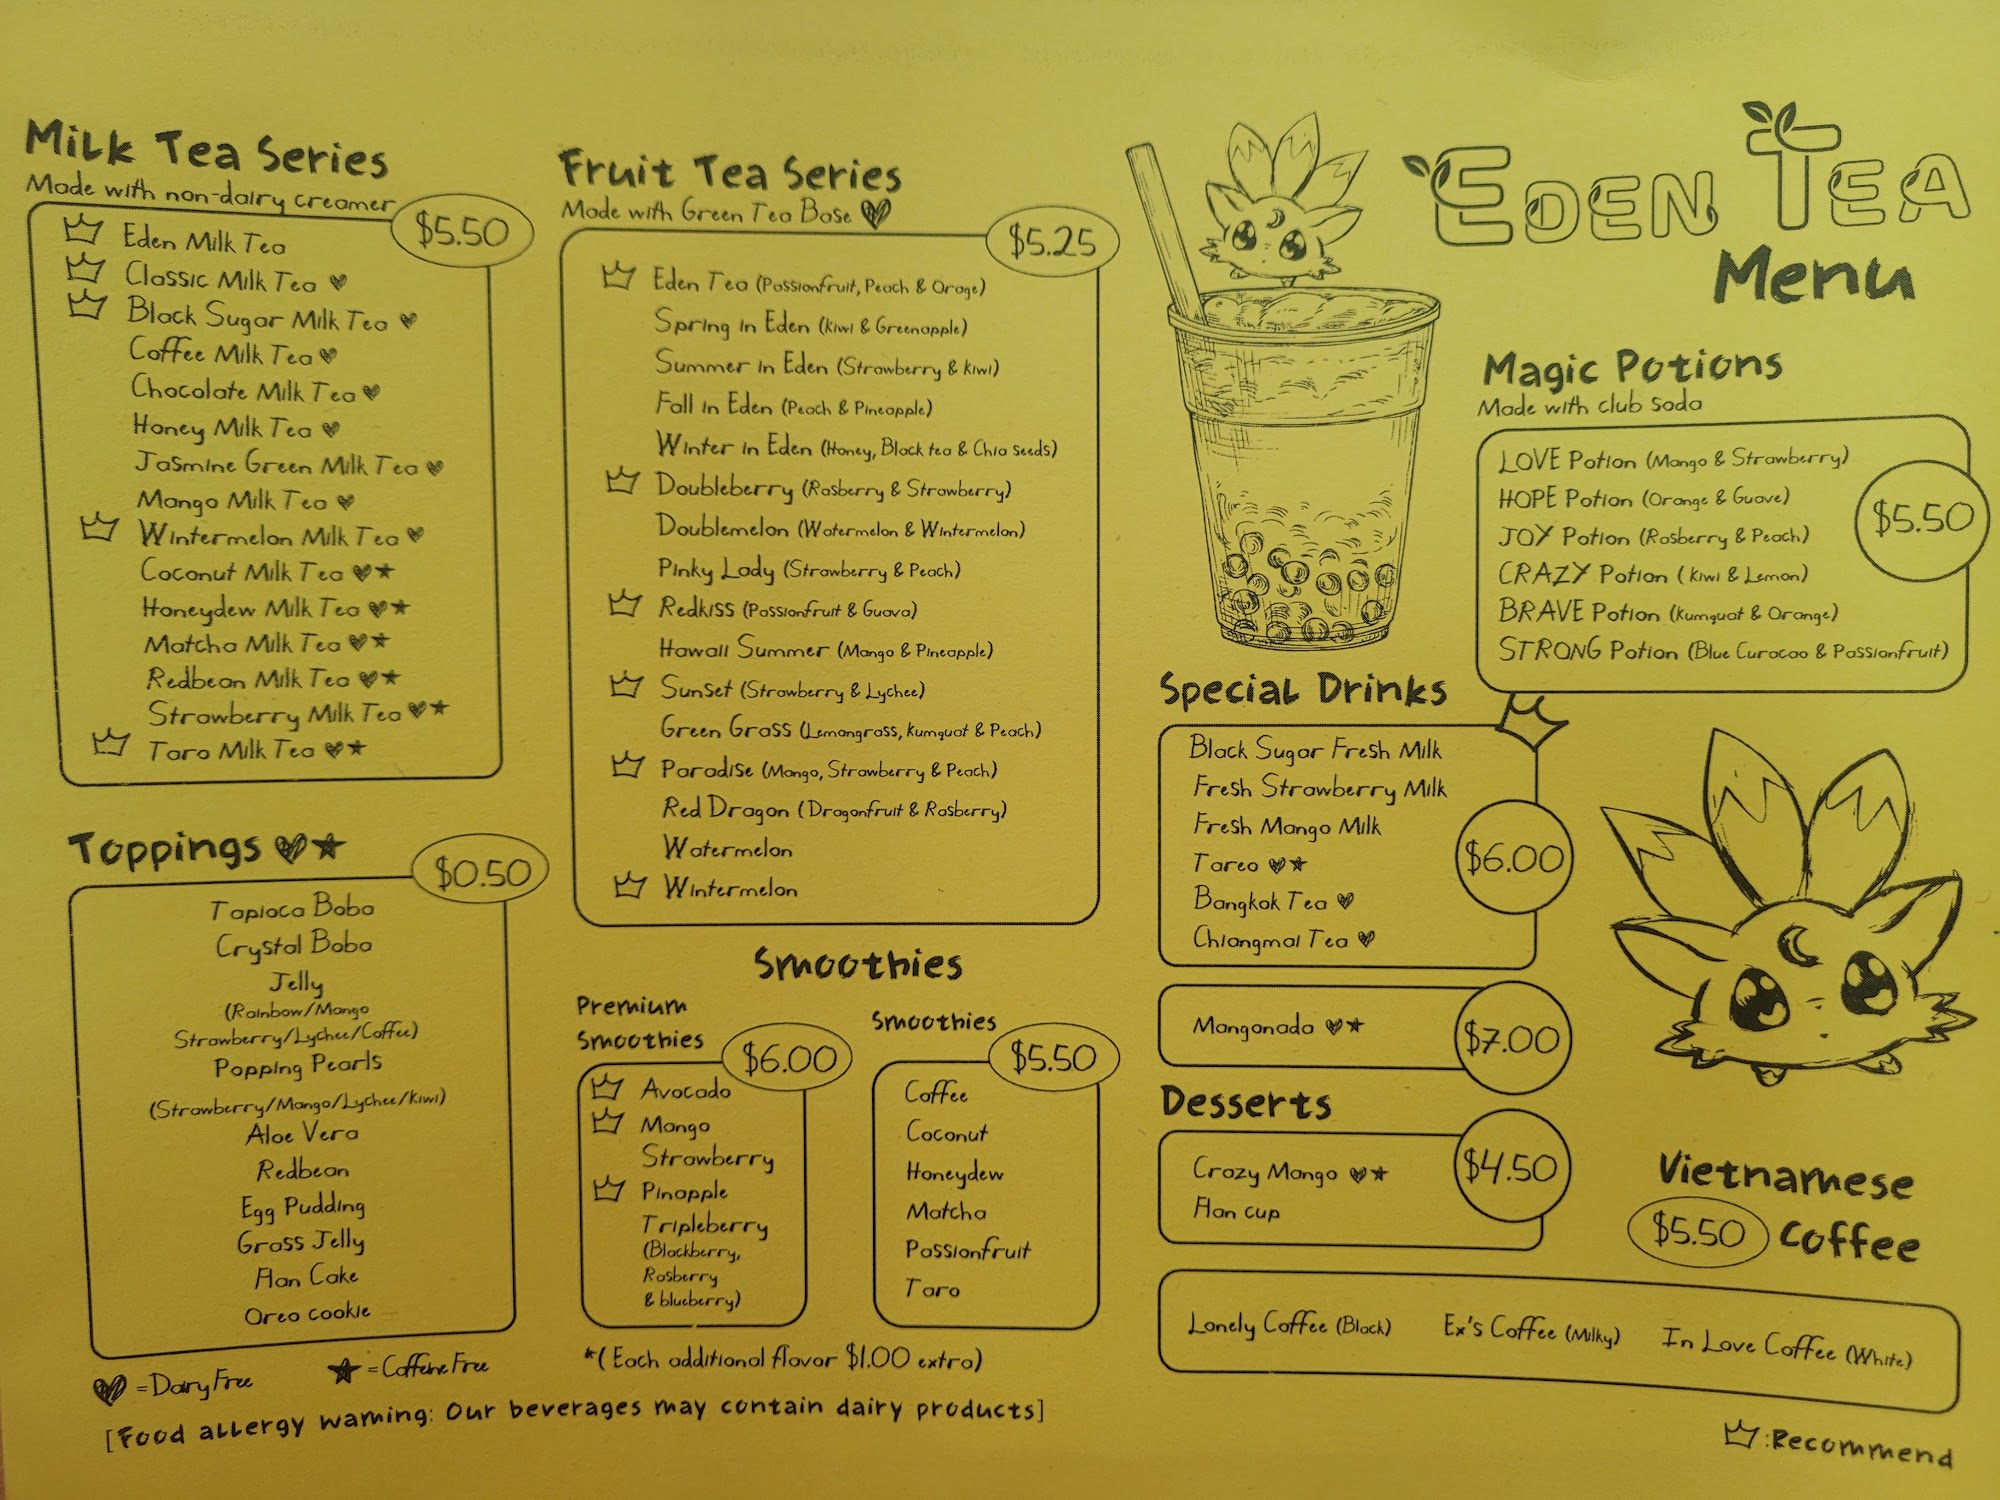 Milk Tea Series
Made with non-dairy creamer
$5.50
Eden Milk Tea
Classic Milk Tea
Black Sugar Milk Tea
Coffee Milk Tea
Chocolate Milk Tea
Honey Milk Tea
Jasmine Green Milk Tea
Mango Milk Tea
Wintermelon Milk Tea
Coconut Milk Tea
Honeydew Milk Tea
Matcha Milk Tea
Redbean Milk Tea
Strawberry Milk Tea
Taro Milk Tea
Toppings
$0.50
Tapioca Boba
Crystal Boba
Jelly
(Rainbow/Mango
Strawberry/Lychee/Coffee)
Popping Pearls
(Strawberry/Mango/Lychee/Kiwi)
Aloe Vera
Redbean
Egg Pudding
Grass Jelly
Flan Cake
Oreo cookie
=Dairy Free
=Caffeine Free
[Food allergy warning: Our beverages may contain dairy products]
Fruit Tea Series
Made with Green Tea Base
$5.25
Eden Tea (Passionfruit, Peach & Orage)
Spring in Eden (Kiwi & Greenapple)
Summer in Eden (Strawberry & Kiwi)
Fall in Eden (Peach & Pineapple)
Winter in Eden (Honey, Black tea & Chia seeds)
Doubleberry (Rasberry & Strawberry)
Doublemelon (Watermelon & Wintermelon)
Pinky Lady (Strawberry & Peach)
Redkiss (Passionfruit & Guava)
Hawaii Summer (Mango & Pineapple)
Sunset (Strawberry & Lychee)
Green Grass (Lemongrass, Kumquat & Peach)
Paradise (Mango, Strawberry & Peach)
Red Dragon (Dragonfruit & Rasberry)
Watermelon
Wintermelon
Smoothies
Premium
Smoothies
$6.00
Avocado
Mango
Strawberry
Pinapple
Tripleberry
(Blackberry,
Rasberry
& blueberry)
Smoothies
$5.50
Coffee
Coconut
Honeydew
Matcha
Passionfruit
Taro
*(Each additional flavor $1.00 extra)
Eden Tea
Menu
Magic Potions
Made with club soda
LOVE Potion (Mango & Strawberry)
HOPE Potion (Orange & Guave)
JOY Potion (Rasberry & Peach)
CRAZY Potion (Kiwi & Lemon)
BRAVE Potion (Kumquat & Orange)
STRONG Potion (Blue Curacao & Passionfruit)
$5.50
Special Drinks
Black Sugar Fresh Milk
Fresh Strawberry Milk
Fresh Mango Milk
Tareo
Bangkok Tea
Chiangmai Tea
$6.00
Mangonada
$7.00
Desserts
Crazy Mango
Flan cup
$4.50
Vietnamese
$5.50 Coffee
Lonely Coffee (Black) Ex's Coffee (Milky) In Love Coffee (White)
:Recommend